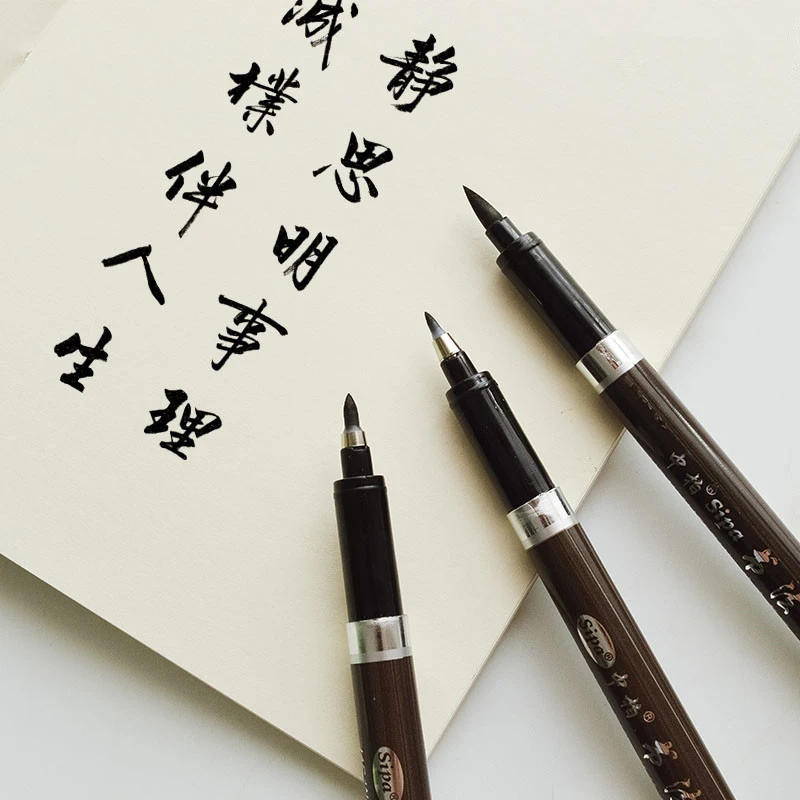 静思明事理
樸伴人生
中柏® Sipa
Sipa® 中柏®
Sipa®